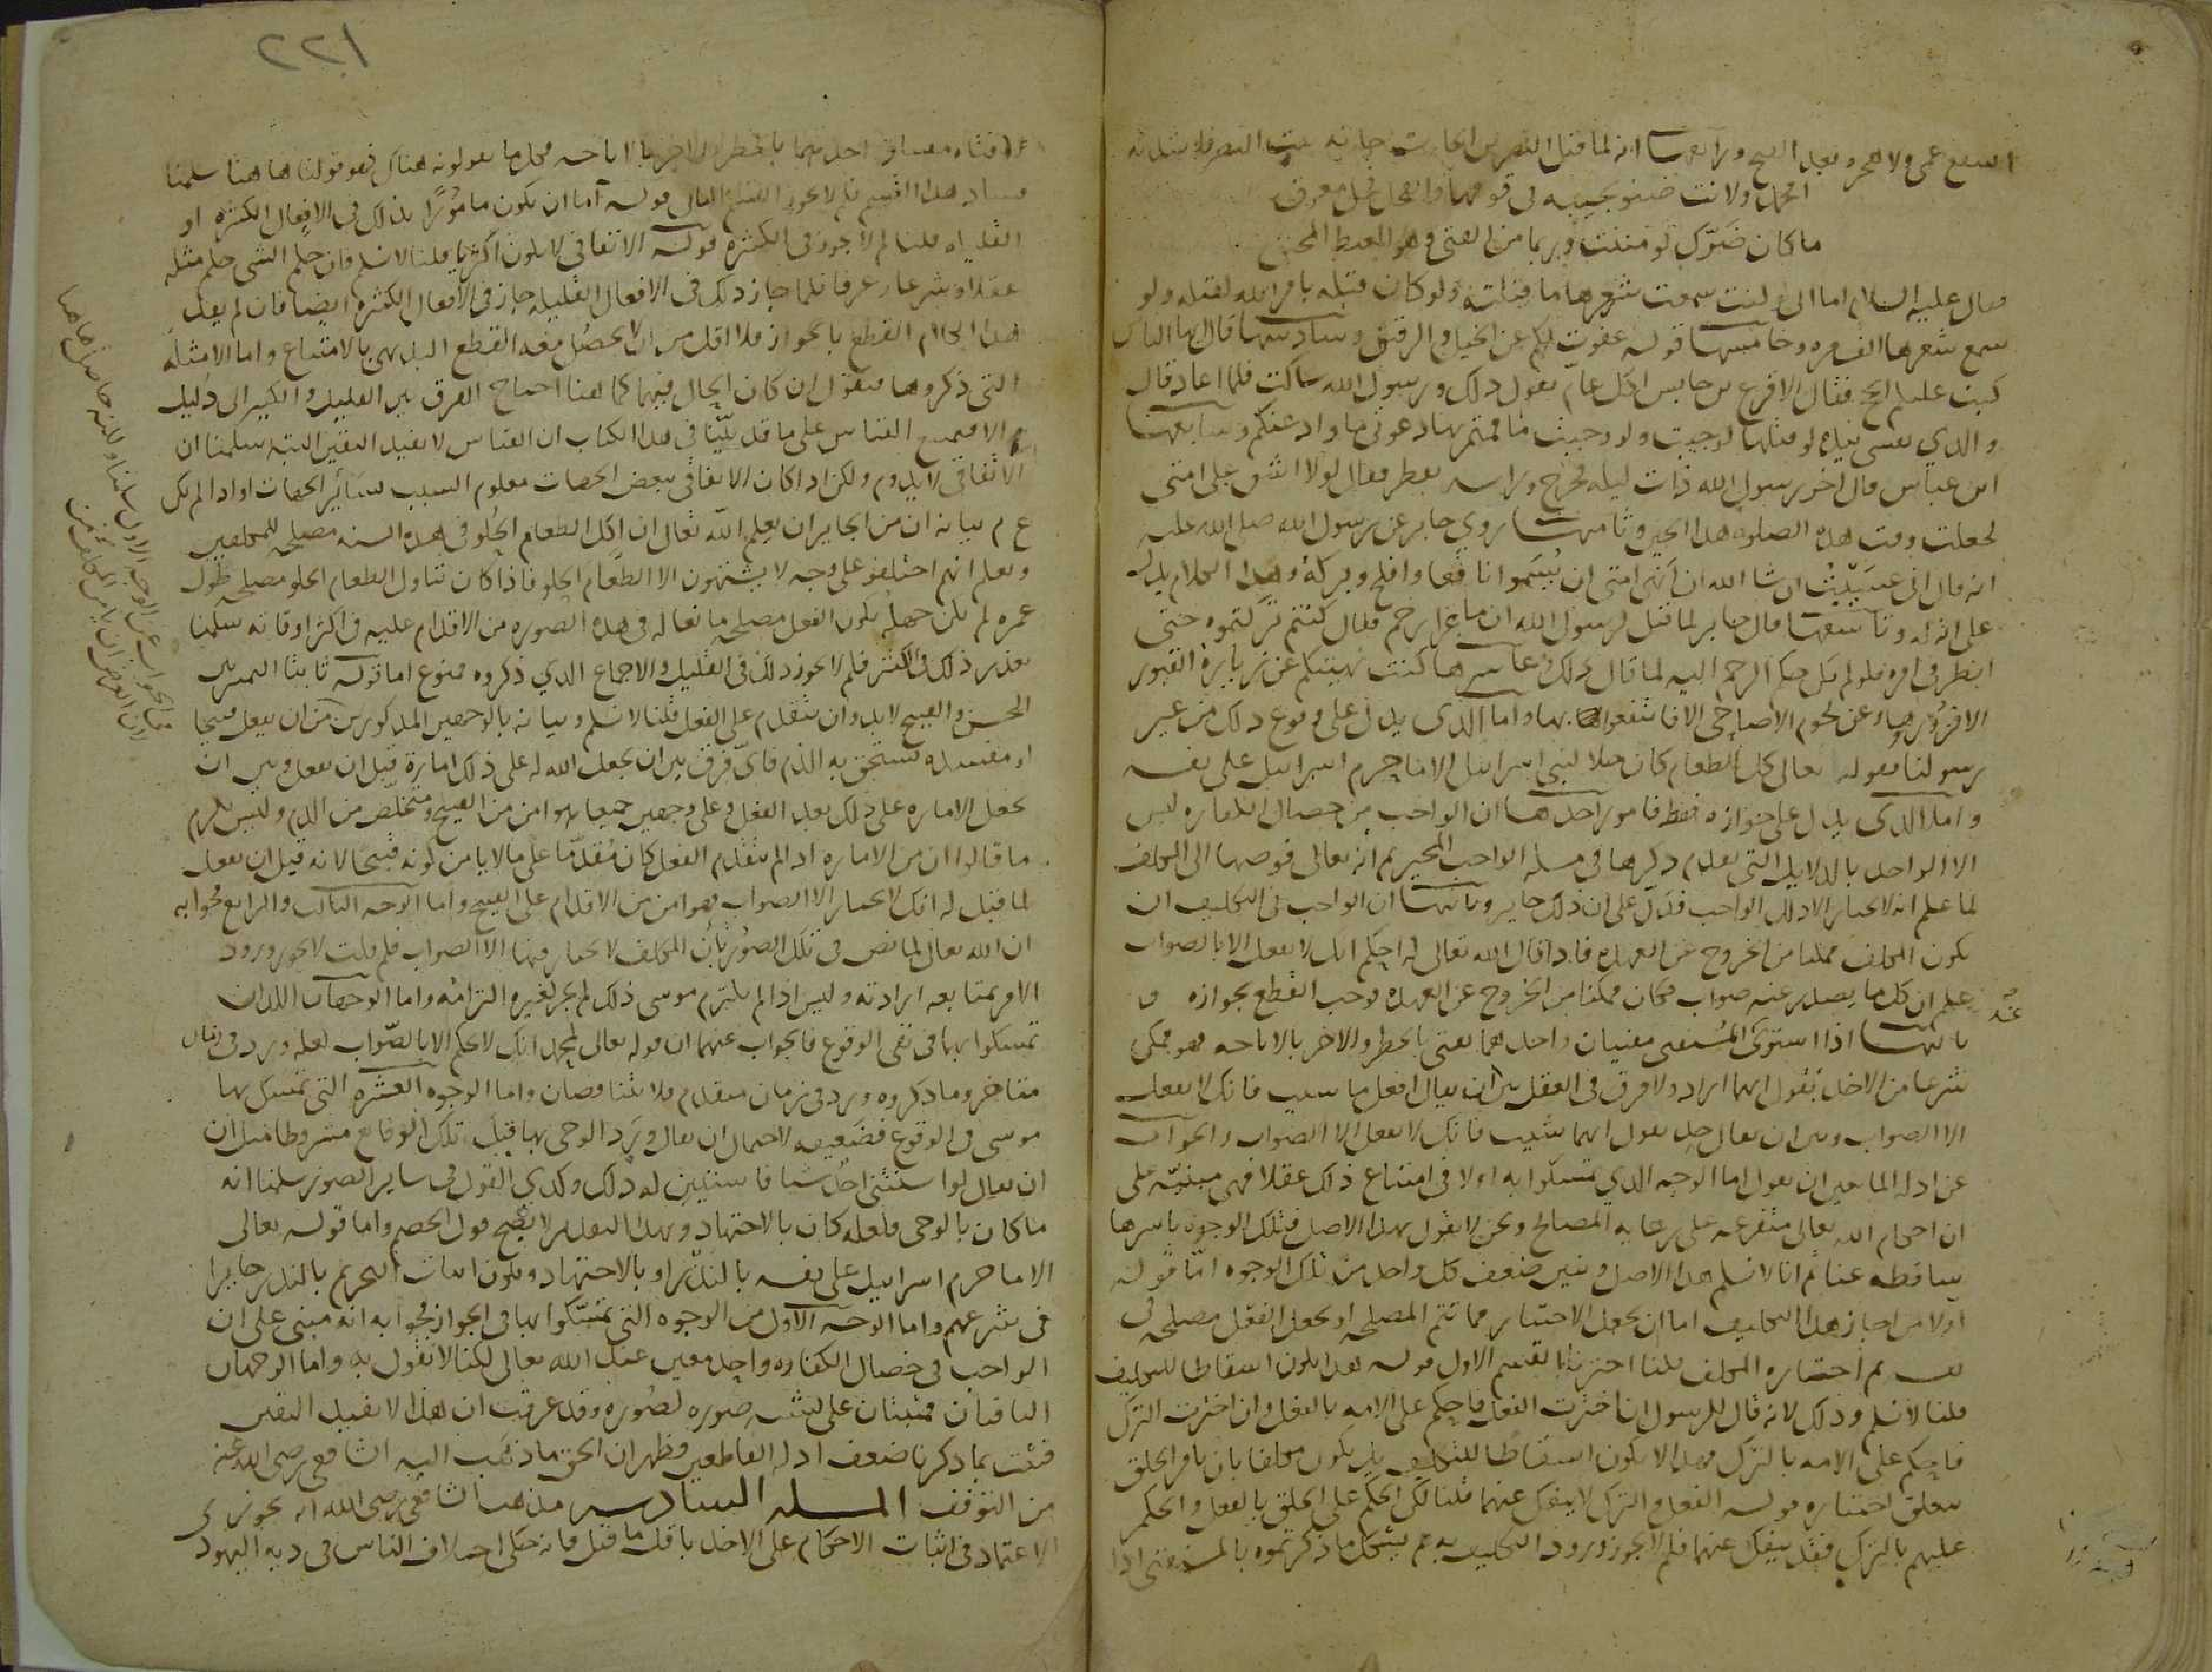 السمع عمى ولا هجر وبعد الفتح ورابعها انه لما قتل النضر بن الحارث جاءته بنت النضر فانشدته
امحمد ولانت ضنو نجيبة في قومها والفحل فحل معرق
ما كان ضرك لو مننت وربما من الفتى وهو المغيظ المحنق
فقال عليه السلام اما اني لو كنت سمعت شعرها ما قتلته ولو كان قتله بامر الله لقتله ولو
سمع شعرها الف مرة وخامسها قوله عفوت لكم عن الخيل والرقيق وسادسها قال يا ايها الناس
كتب عليكم الحج فقال الاقرع بن حابس اكل عام يقول ذلك ورسول الله ساكت فلما اعاد قال
والذي نفسي بيده لو قلتها لوجبت ولو وجبت ما قمتم بها دعوني ما ودعتكم وسابعها
ابن عباس قال اخر رسول الله ذات ليلة فخرج وراسه يقطر فقال لولا اشق على امتي
لجعلت وقت هذه الصلوة هذا الحين وثامنها روي جابر عن رسول الله صلى الله عليه
انه قال اني عشت ان شا الله ان انهى امتي ان يسموا نافعا وافلح وبركة وهذا الكلام يدل
على انه له وتاسعها قال جابر لما قيل لرسول الله ان ماعزا رجم فقال كنتم تركتموه حتى
انظر في امره فلو لم يكن حكم الرجم اليه لما قال ذلك وعاشرها كنت نهيتكم عن زيارة القبور
الا فزوروها وعن لحوم الاضاحي الا فانتفعوا بها واما الذي يدل على وقوع ذلك من غير
رسولنا فقوله تعالى كل الطعام كان حلا لبني اسرائيل الا ما حرم اسرائيل على نفسه
واما الذي يدل على جوازه فقط فامور احدها ان الواجب من خصال الكفارة ليس
الا الواحد بالدلايل التي تقدم ذكرها في مسلة الواجب المخير ثم انه تعالى فوضها الى المكلف
لما علم انه لا يختار الا ذلك الواجب فدل على ان ذلك جايز وثانيها ان الواجب في التكليف ان
يكون المكلف ممكنا من الخروج عن العهدة فاذا قال الله تعالى له احكم انك لا تفعل الا بالصواب
علم ان كل ما يصدر عنه صواب فكان ممكنا من الخروج عن العهدة فوجب القطع بجوازه
ثالثها اذا استوى المستفتي مفتيان واحدهما يفتي بالحظر والاخر بالاباحة فهو ممكن
شرعا من الاخذ بقول ايهما اراد ولا فرق في العقل بين ان يقال افعل ما شيت فانك لا تفعل
الا الصواب وبين ان يقال خذ بقول ايهما شيت فانك لا تفعل الا الصواب والجواب
عن ادلة المانعين ان نقول اما الوجه الذي تمسكوا به اولا في امتناع ذلك عقلا فهي مبنية على
ان احكام الله تعالى متفرعة على رعاية المصالح ونحن لا نقول بهذا الاصل فتلك الوجوه باسرها
ساقطة عنا ثم انا لا نسلم هذا الاصل ونبين ضعف كل واحد من تلك الوجوه اما قوله
اولا من اجاز هذا التكليف اما ان يجعل الاختيار مما تتم المصلحة او يجعل الفعل مصلحة في
نفسه ثم اختياره المكلف قلنا اخترنا القسم الاول قوله هذا يكون اسقاطا للتكليف
قلنا لا نسلم وذلك لانه قال للرسول ان اخترت الفعل فاحكم على الامة بالفعل وان اخترت الترك
فاحكم على الامة بالترك فهذا لا يكون اسقاطا للتكليف بل يكون مكلفا بان يامر الخلق
بتعلق اختياره قوله الفعل والترك لا ينفك عنهما قلنا لكن الحكم على الخلق بالفعل والحكم
عليهم بالترك فقد ينفك عنهما فلم لا يجوز ورود التكليف به ثم يشكل ما ذكرتموه بالمستفتي اذا
عنه
٢٢١
افتاه مفتيان احدهما بالحظر والاخر بالاباحة فكل ما يقولونه هناك فهو قولنا هاهنا سلمنا
فساد هذا القسم فلم لا يجوز القسم الثاني قوله اما ان يكون مامورا بذلك في الافعال الكثيرة او
القليلة قلنا لم لا يجوز في الكثيرة قوله الاتفاقي لا يكون اكثريا قلنا لا نسلم فان حكم الشي حكم مثله
عقلا وشرعا وعرفا فلما جاز ذلك في الافعال القليلة جاز في الافعال الكثيرة ايضا فان لم يفد
هذا الكلام القطع بالجواز فلا اقل من ان لا يحصل معه القطع البديهي بالامتناع واما الامثلة
التي ذكروها فنقول ان كان الحال فيها كما هنا احتاج الفرق بين القليل والكثير الى دليل
والا فيمتنع القياس على ما قد بينا في هذا الكتاب ان القياس لا يفيد اليقين البتة سلمنا ان
الاتفاقي لا يدوم ولكن اذا كان الاتفاقي ببعض الجهات معلوم السبب لسائر الجهات او اذا لم يكن
ع م بيانه ان من الجايز ان يعلم الله تعالى ان اكل الطعام الحلو في هذه السنة مصلحة للمكلفين
ويعلم انهم اختلفوا على وجه لا يشتهون الا الطعام الحلو فاذا كان تناول الطعام الحلو مصلحة طول
عمره لم يكن جهله بكون الفعل مصلحة مانعا له في هذه الصورة من الاقدام عليه في اكثر اوقاته سلمنا
تعذر ذلك في الكثير فلم لا يجوز ذلك في القليل والاجماع الذي ذكروه ممنوع اما قوله ثانيا التمييز بين
الحسن والقبيح لا بد وان يتقدم على الفعل قلنا لا نسلم وبيانه بالوجهين المذكورين من ان يفعل قبيحا
او مفسدة يستحق به الذم فاي فرق بين ان يجعل الله له على ذلك امارة قبل ان يفعل وبين ان
يجعل الامارة على ذلك بعد الفعل وعلى وجهين جميعا هو امن من القبيح ومتخلص من الذم وليس يلزم
ما قالوا ان من الامارة اذا لم تتقدم الفعل كان مقدما على ما لا يامن كونه قبيحا لانه قبل ان يفعل
لما قيل له انك لا تختار الا الصواب فهو امن من الاقدام على القبيح واما الوجه الثالث والرابع فجوابه
ان الله تعالى لما نص في تلك الصور بان المكلف لا يختار فيها الا الصواب فلم قلت لا يجوز ورود
الامر بمتابعة ارادته وليس اذا لم يلتزم موسى ذلك لم يجز لغيره التزامه واما الوجهان اللذان
تمسكوا بهما في نفي الوقوع فالجواب عنهما ان قوله تعالى لمحمد انك لا تحكم الا بالصواب لعله ورد في زمان
متاخر وما ذكروه ورد في زمان متقدم فلا يتناقضان واما الوجوه العشرة التي تمسك بها
موسى في الوقوع فضعيفه لاحتمال ان يقال ورد الوحي بها قبل تلك الوقايع مشروطا مثل ان
ان يقال لو استثنى احد شيا فاستثنين له ذلك وكذي القول في ساير الصور سلمنا انه
ما كان بالوحي فلعله كان بالاجتهاد وبهذا التقدير لا يصح قول الخصم واما قوله تعالى
الا ما حرم اسرائيل على نفسه بالنذر او بالاجتهاد ويكون اثبات التحريم بالنذر جايزا
في شرعهم واما الوجه الاول من الوجوه التي تمسكوا بها في الجواز فجوابه انه مبني على ان
الواجب في خصال الكفارة واحد معين عند الله تعالى لكنا لا نقول به واما الوجهان
الباقيان فمبنيان على تشبيه صورة لصورة وقد عرفت ان هذا لا يفيد اليقين
فثبت بما ذكرنا ضعف ادلة القاطعين وظهر ان الحق ما ذهب اليه الشافعي رضي الله عنه
من التوقف المسلة السادسة مذهب الشافعي رضي الله انه يجوز
الاعتماد في اثبات الاحكام على الاخذ باقل ما قيل فانه حكى اختلاف الناس في دية اليهود